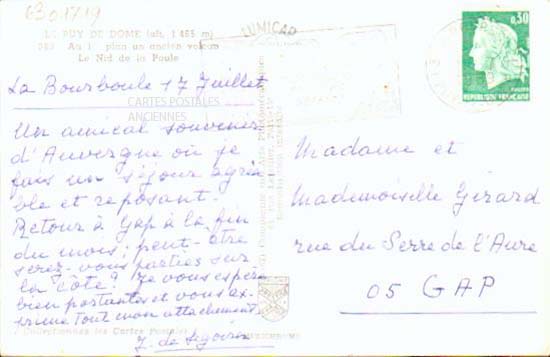 6301719
LE PUY DE DOME (alt. 1 465 m)
Au 1 plan un ancien volcan
Le Nid de la Poule
La Bourboule 17 Juillet
CARTES POSTALES
ANCIENNES
Un amical souvenir
d'Auvergne où je
fais un séjour agréa
ble et reposant.
Retour à Gap à la fin
du mois; peut-être
serez-vous parties sur
la Côte? Je vous espère
bien portantes et vous ex-
prime tout mon attachement.
Collectionnez les Cartes Postales
0,30
REPUBLIQUE FRANÇAISE
Madame et
Mademoiselle Girard
rue du Serre de l'Aure
05 GAP